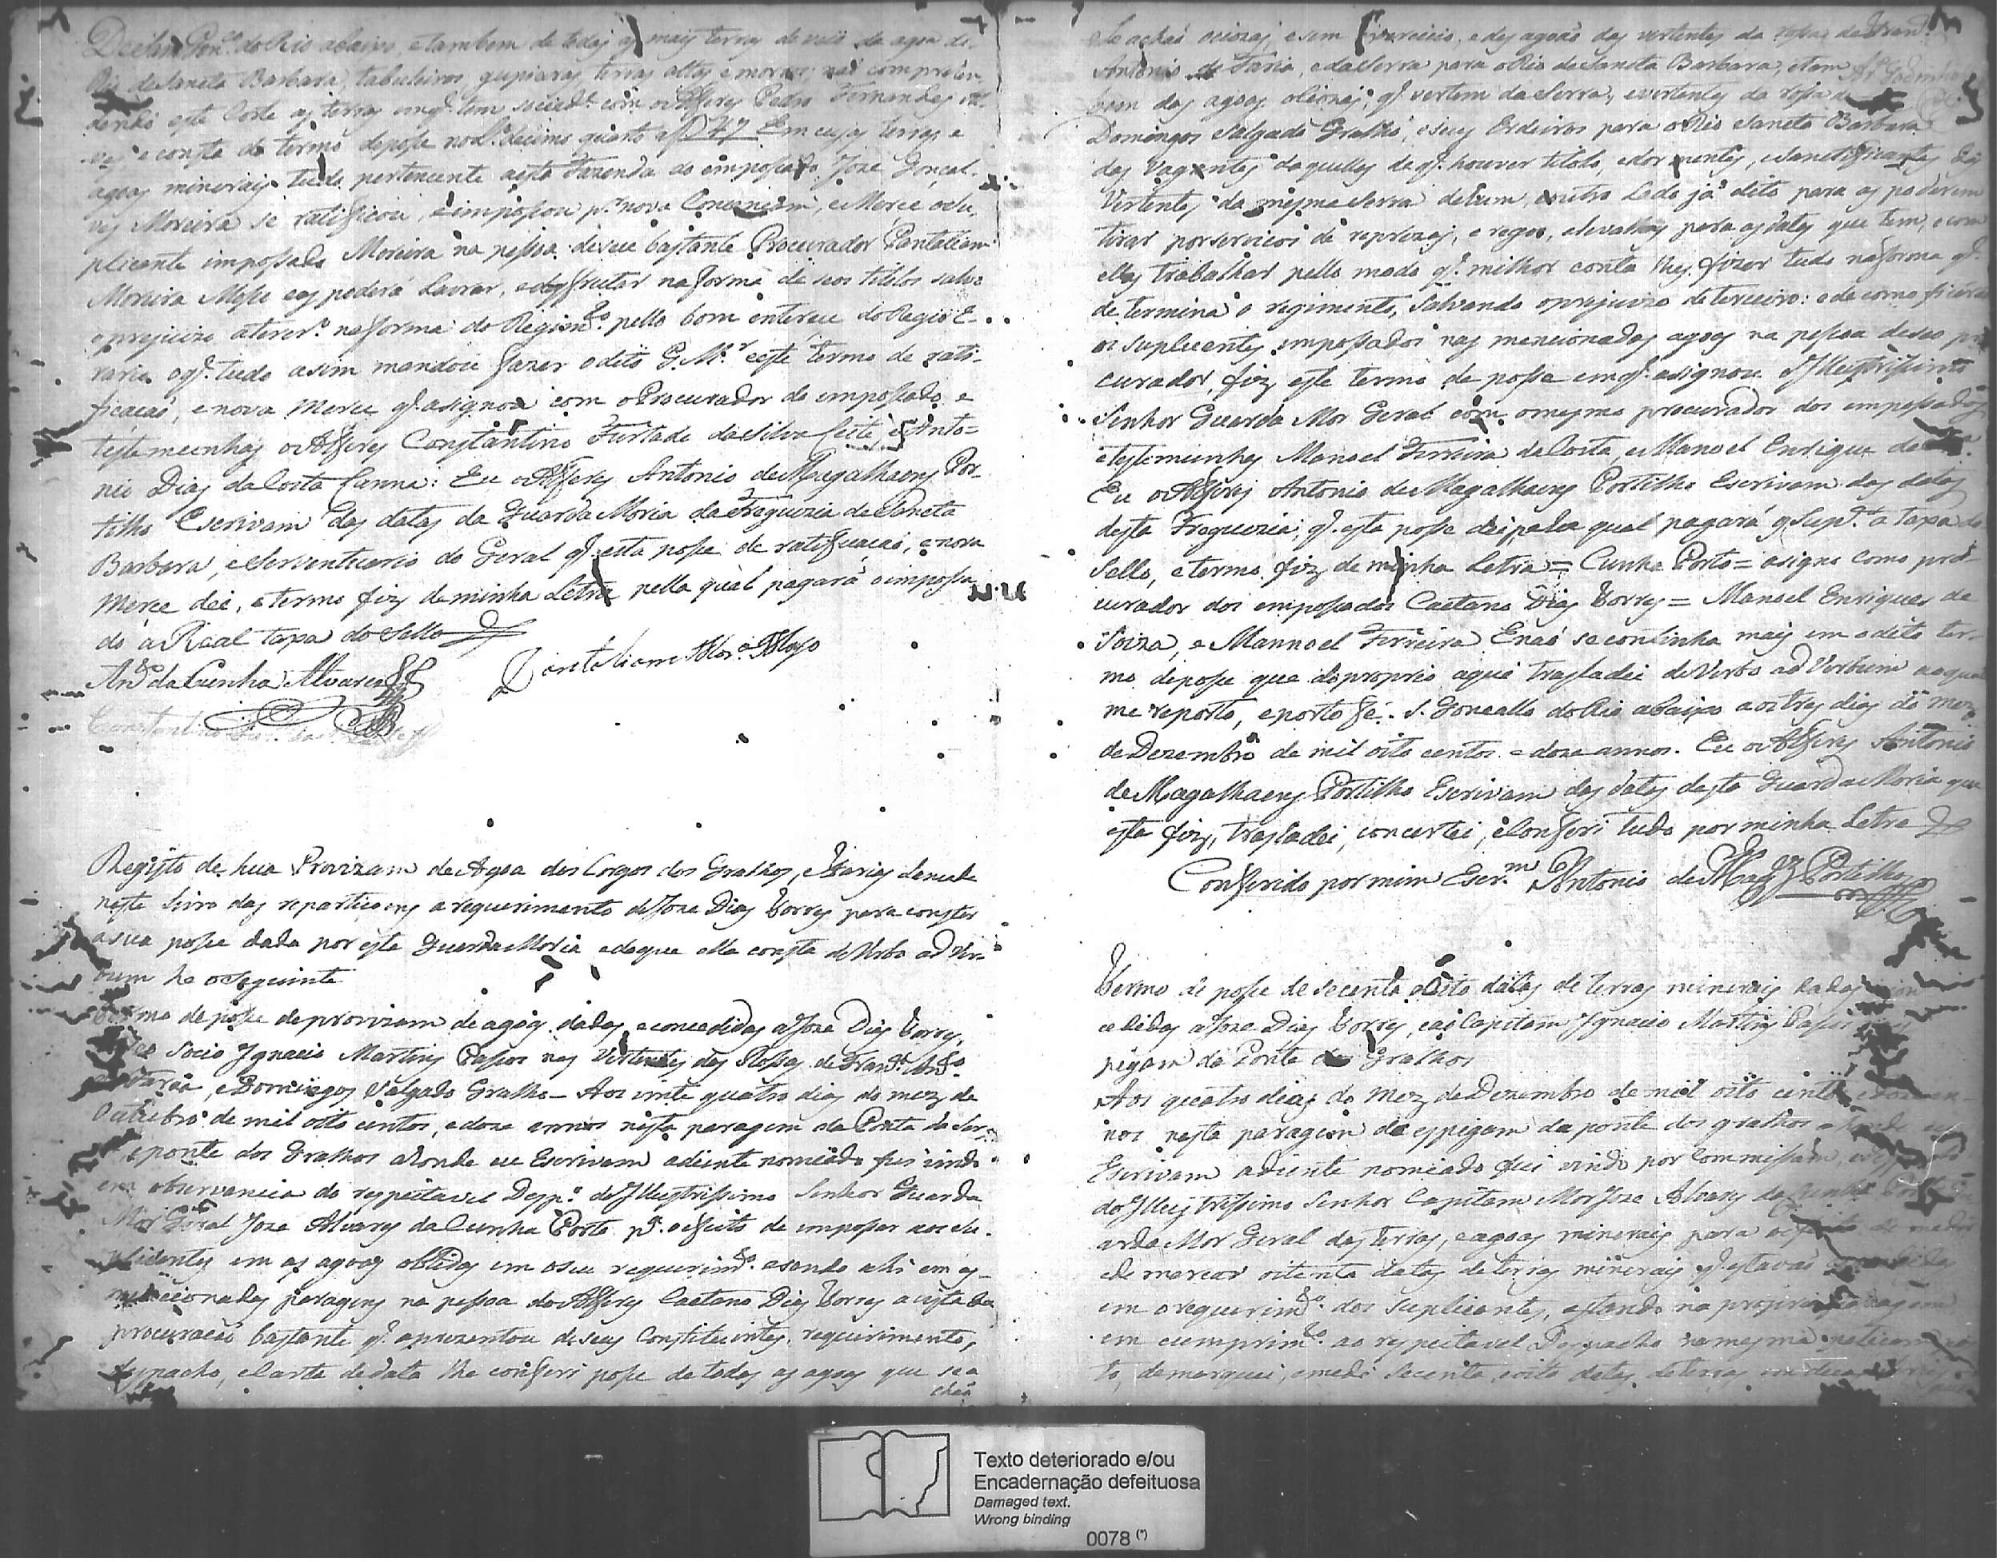 do Rio abaixo, e tambem de todas as mais terras de veio de agoa do
Rio de Sancta Barbara, taboleiros, gupiaras, terras altas e morros; não compreen
dendo este Corte as terras em q. tem socied.e com o Alferes Pedro Fernandes
e consta do termo de posse no L.o decimo quarto a f 47 Em cujas terras e
agoas minerais tudo pertencente a esta Fazenda do empossado Joze Gonçal-
ves Moreira se ratificou, e impossou p.r nova Concenção, e Merce o Su,
plicante impossado Moreira na pessoa de seu bastante Procurador Pantaliam
Moreira e as poderá Lavrar, e desfrutar na forma de seos titolos salvo
o prejuizo a tercr.o na forma do Regim.to pello bom enterece do Regio E
rario. o q. tudo asim mandou fazer o dito G. M.r este termo de rati-
ficação, e nova Merce q. asignou com o Procurador do empossado, e
testemunhas o Alferes Constantino Furtado da Silva e Anto-
nio Dias da Costa Lanna: Eu o Alferes Antonio de Magalhaens Por-
tilho Escrivam das datas da Guarda Moria da Freguezia de Sancta
Barbara, e Serventuario do Geral q. esta posse de ratificação, e nova
Merce dei, e termo fiz de minha Letra pella qual pagará o impossa
do a Real taxa do Sello
da Cunha Alvares
Pantaliam

Registo de hua Provizam de Agoa dos Corgos dos Gralhos, e Farias
neste Livro das reparticoens a requerimento de Joze Dias Torres para constar
a sua posse dada por esta Guarda Moria e de que ella consta de Verbo ad Ver-
bum he o Seguinte
Termo de posse de provizam de agoas dadas, e concedidas a Joze Dias Torres,
e seo Socio Ignacio Martins Passos nas Vertentes das Rossas de Fran.co An.to
de Faria, e Domingos Salgado Gralho - Aos vinte quatro dias do mez de
Outubro de mil oito centos, e doze annos nesta paragem da Ponta da Ser-
ra e ponte dos Gralhos aonde eu Escrivam adiente nomeado fui vindo
em observancia do respeitavel Desp.o do Illustrissimo Senhor Guarda
Mor Geral Joze Alvares da Cunha Porto p.a o efeito de impossar aos Su-
plicantes em as agoas obtidas em o seu requerim.to e sendo ahi em as
mencionadas paragens na pessoa do Alferes Caetano Dias Torres a vista da
procuração bastante q. aprezentou de seus Constituintes, requerimento,
despacho, e Carta de data lhe conferi posse de todas as agoas que se a
chão

Se achão ociozas, e sem exercicio, e das agoas das vertentes da rossa de Fran.co
Antonio de Faria, e da Serra para o Rio de Sancta Barbara, e tam
bem das agoas ociozas, q. vertem da Serra, e vertentes da rossa de
Domingos Salgado Gralho, e seus Erdeiros para o Rio Sancta Barbara
das Vagantes daquelles de q. houver titolo, e dormentes, e Sanctificantes
Vertentes da mesma Serra de hum, e outro Lado já dito para as poderem
tirar por servicos de reprezas, e regos, e levallas para as datas que tem, e com
ellas trabalhar pello modo q. milhor conta lhes fizer tudo na forma q.
determina o regimento, Salvando o prejuizo de terceiro: e de como ficarão
os suplicantes impossados nas mencionadas agoas na pessoa de seo pro
curador, fiz este termo de posse em q. asignou o Illustrissimo
Senhor Guarda Mor Geral com o mesmo procurador dos empossados
e testemunhas Manoel Ferreira da Costa, e Manoel Enriques de
Eu o Alferes Antonio de Magalhaens Portilho Escrivam das datas
desta Freguezia; q. esta posse dei pela qual pagará o Sup.te a taxa do
Sello, e termo fiz de minha Letra = Cunha Porto = asigno como pro-
curador dos empossados Caetano Dias Torres = Manoel Enriques de
Soiza, e Mannoel Ferreira. E não se continha mais em o dito ter-
mo de posse que do proprio aqui trasladei de Verbo ad Verbum ao qual
me reporto, e porto fé. S. Goncallo do Rio abaixo aos tres dias do mez
de Dezembro de mil oito centos e doze annos. Eu o Alferes Antonio
de Magalhaens Portilho Escrivam das datas desta Guarda Moria que
esta fiz, trasladei, concertei, e conferi tudo por minha Letra
Conferido por mim Escr.m Antonio de Mag.es Portilho

Termo de posse de secenta e oito datas de terras minerais dadas
cedidas a Joze Dias Torres, e ao Capitam Ignacio Martins Passos
pigam da Ponte dos Gralhos
Aos quatro dias do Mez de Dezembro de mil oito centos e doze an-
nos nesta paragem do espigam da ponte dos gralhos
Escrivam adiente nomeado fui vindo por Commissam
do Illustrissimo Senhor Capitam Mor Joze Alvares da Cunha Porto
arda Mor Geral das terras, e agoas minerais para o efeito de medir
e demarcar oitenta datas de terras minerais q. estavão
em o requerim.to dos Suplicantes, e estando na propria paragem
em cumprim.to ao respeitavel Despacho na mesma
to, demarquei, e medi secenta e oito datas de terras

Texto deteriorado e/ou
Encadernação defeituosa
Damaged text.
Wrong binding
0078 (*)